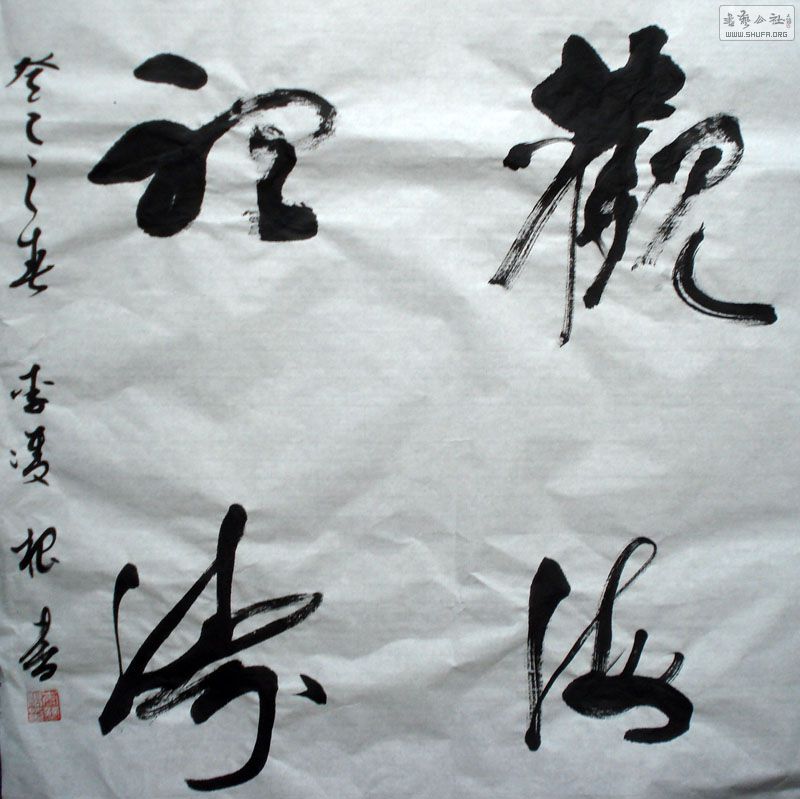 觀海
視濤
癸巳之春
李凌根書
書藝公社
WWW.SHUFA.ORG